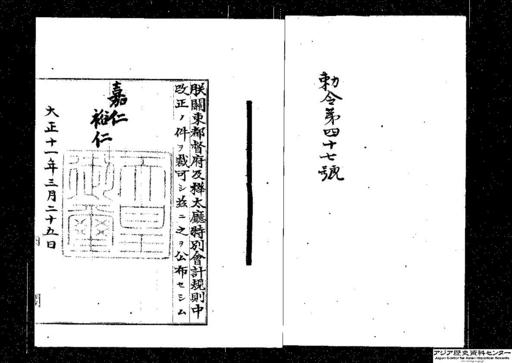 勅令第四十七號
朕關東都督府及樺太廳特別會計規則中
改正ノ件ヲ裁可シ玆ニ之ヲ公布セシム
嘉仁
裕仁
大正十一年三月二十五日
アジア歴史資料センター
Japan Center for Asian Historical Records